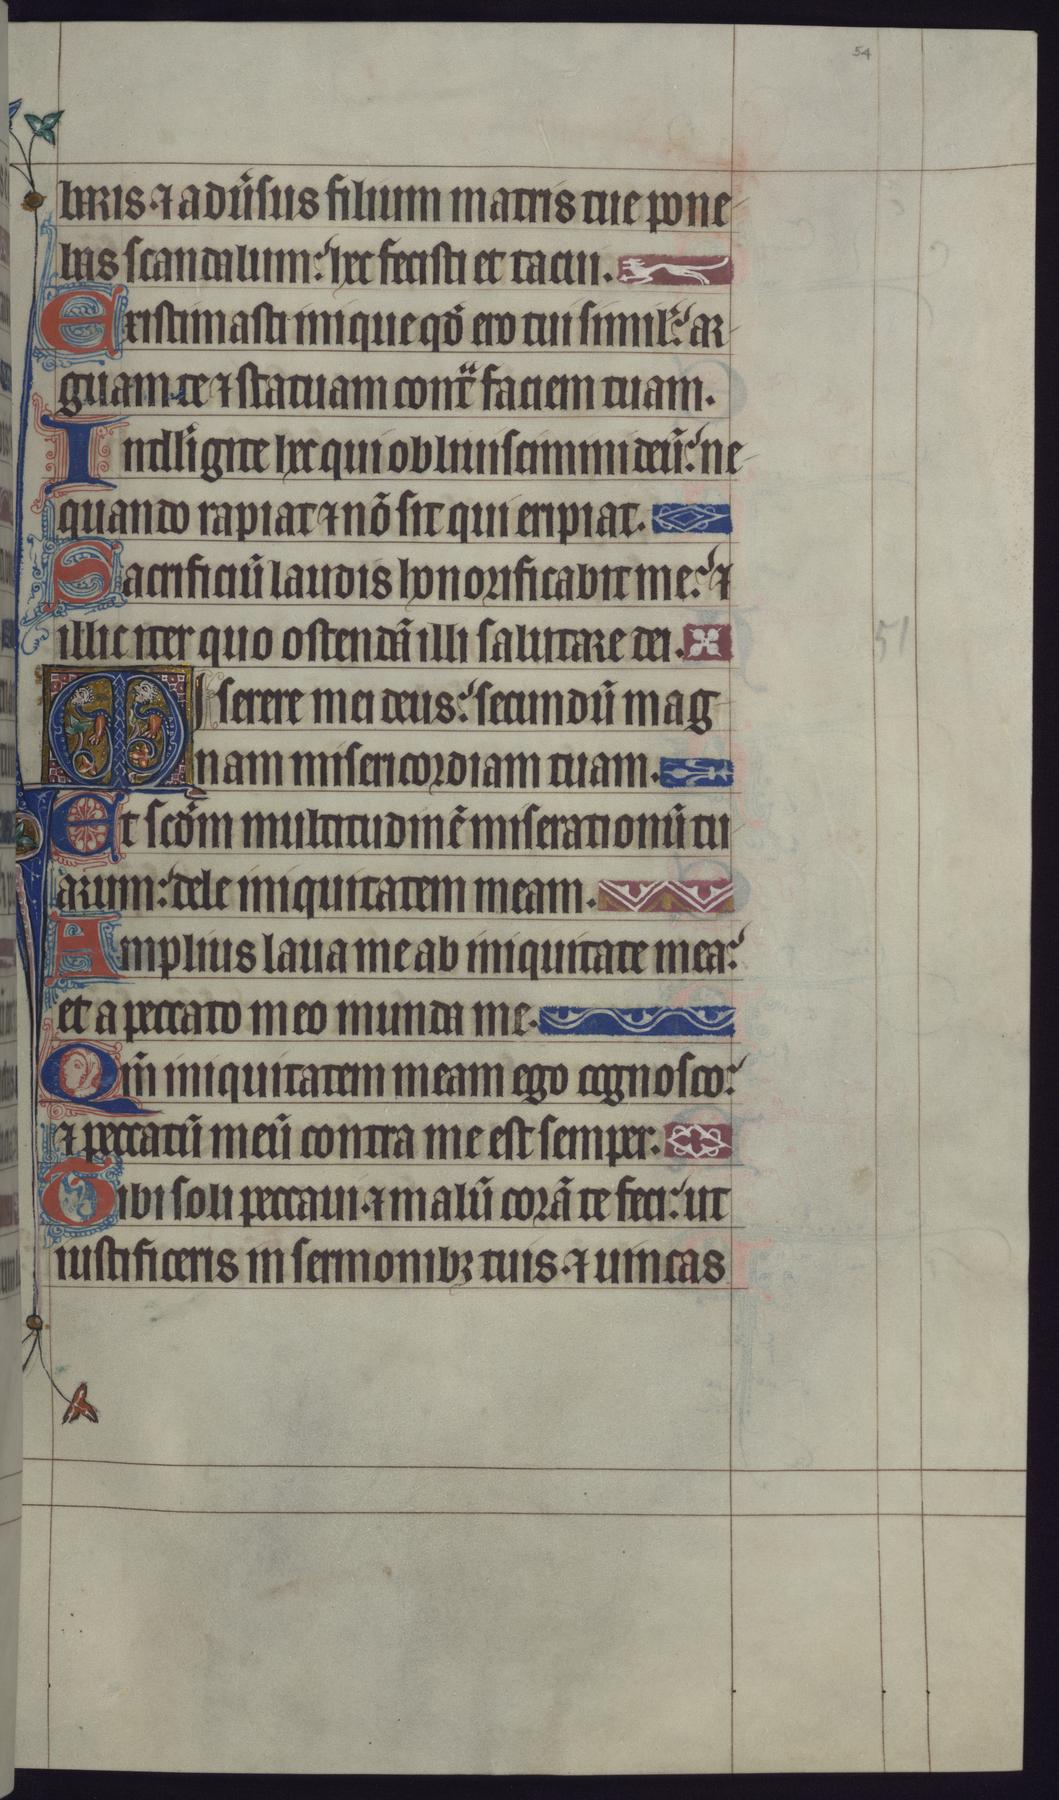 54
baris ⁊ adu̅sus filium matris tue pone
bas scandalum: hec fecisti et tacui.
Existimasti inique qđ ero tui simil̕: ar
guam te ⁊ statuam cont̃ faciem tuam.
Intelligite hec qui obliuiscimini deū: ne
quando rapiat ⁊ nō sit qui eripiat.
Sacrificiū laudis honorificabit me: ⁊
illic iter quo ostendā illi salutare dei.
Miserere mei deus: secundū mag
nam misericordiam tuam.
Et scđm multitudinē miserationū tu
arum: dele iniquitatem meam.
Amplius laua me ab iniquitate mea:
et a peccato meo munda me.
Qm̄ iniquitatem meam ego cognosco:
⁊ peccatū meū contra me est semper.
Tibi soli peccaui ⁊ malū corā te feci: ut
iustificeris in sermonibꝫ tuis ⁊ uincas
51